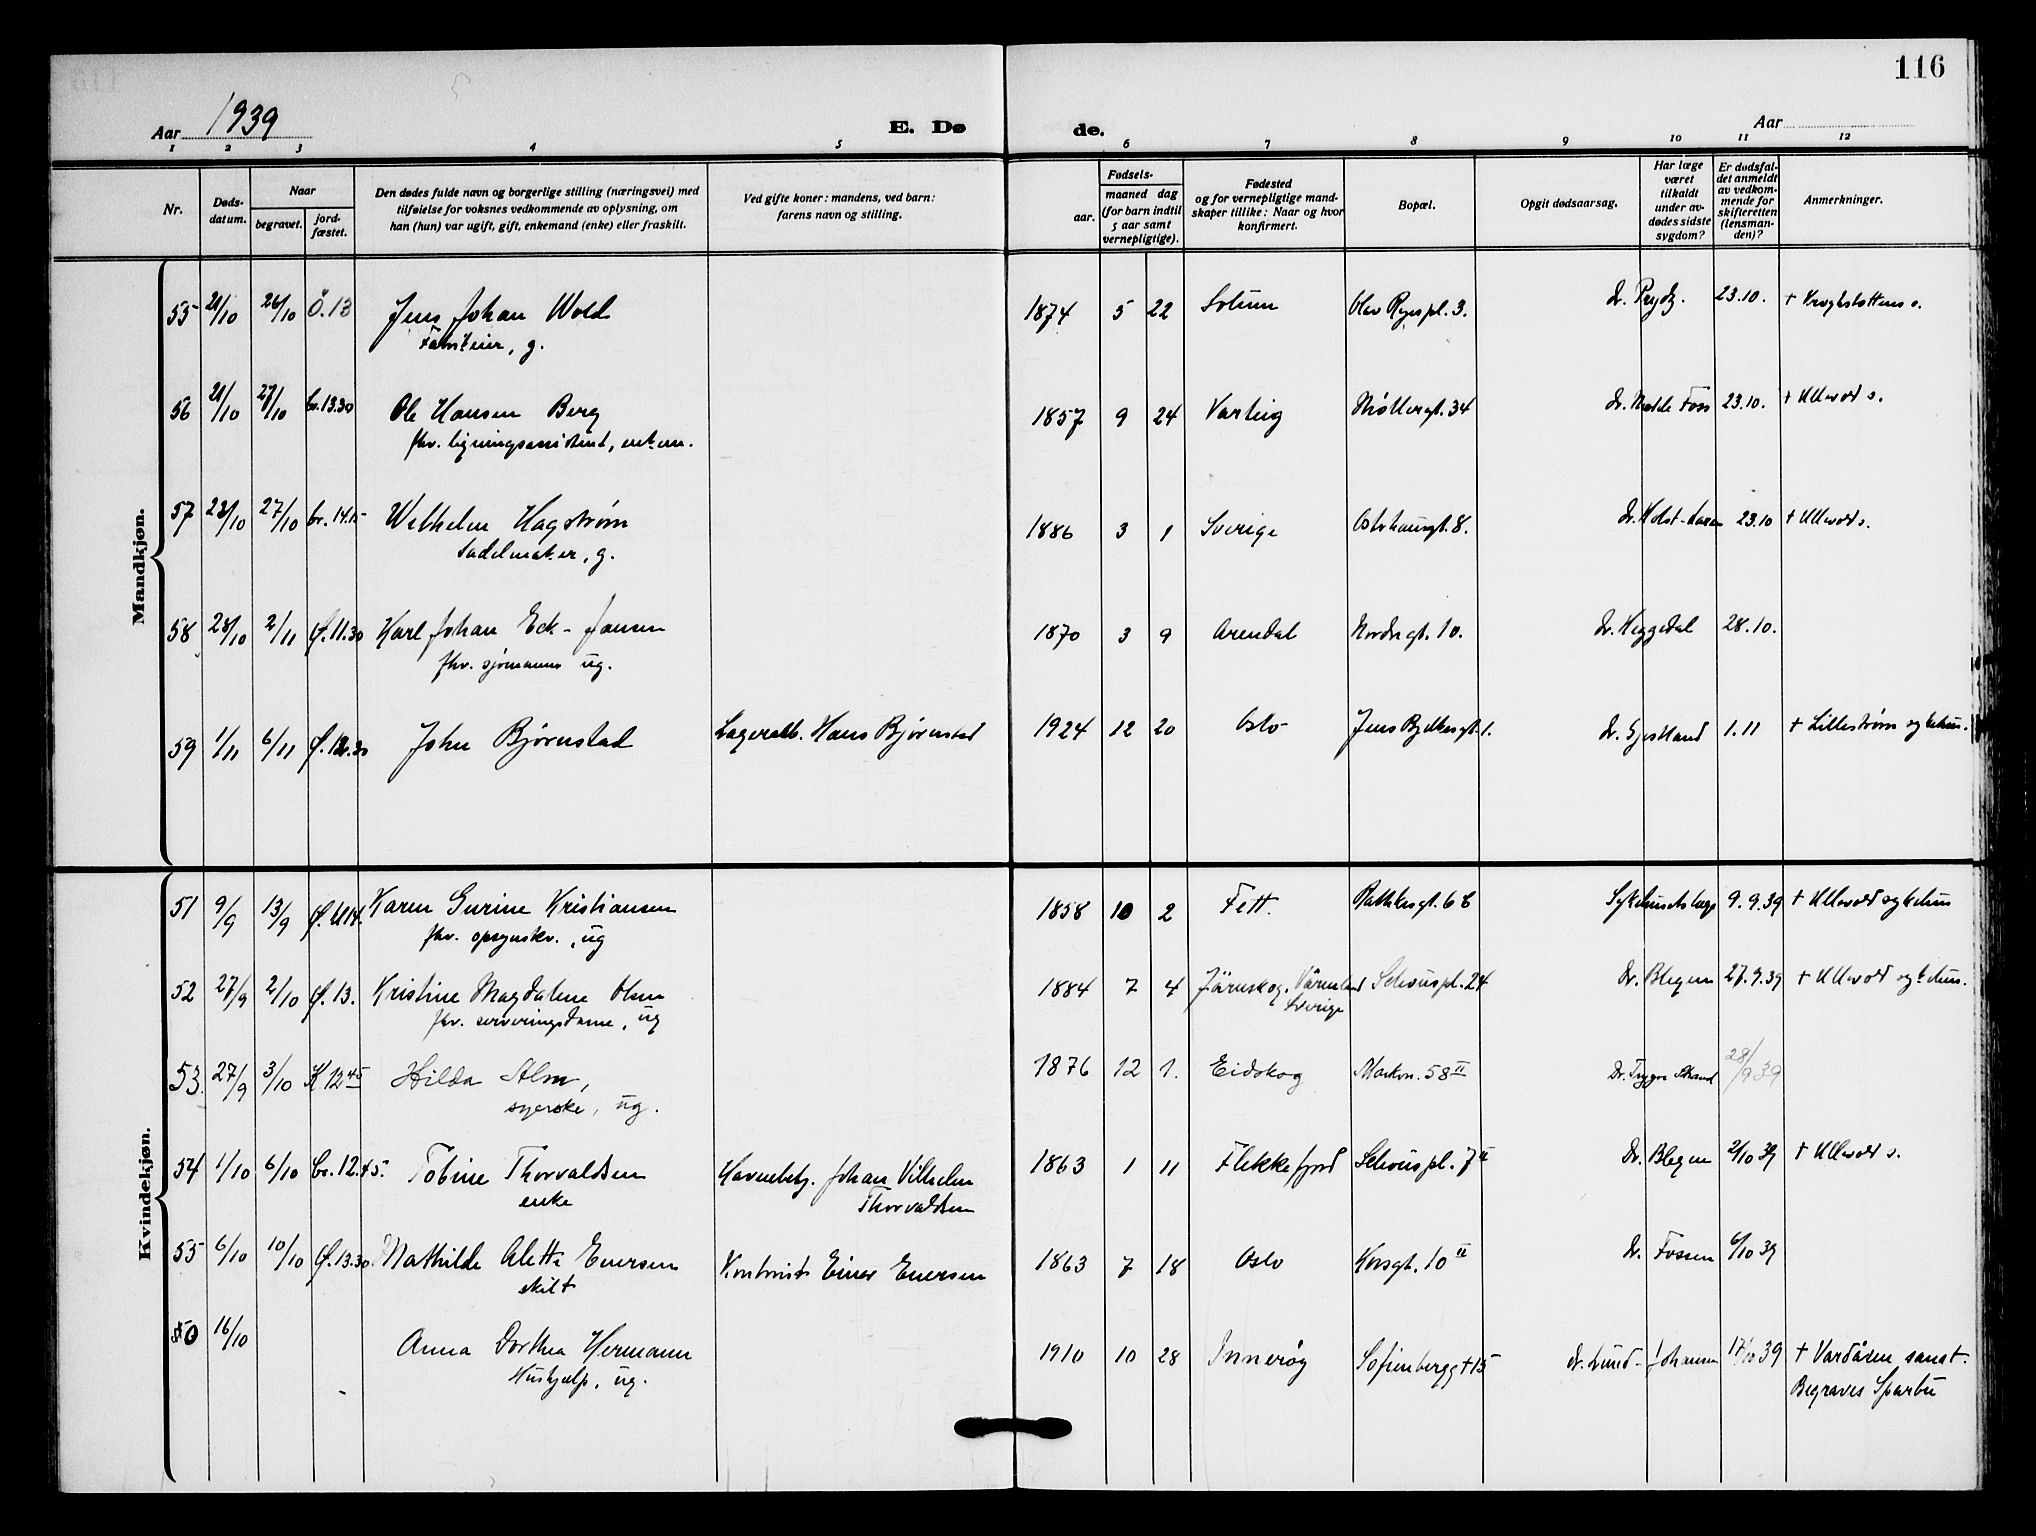 116
Aar 1939
E. Dø de.
Aar
1 2 3 4 5 6 7 8 9 10 11 12
Nr.
Døds-
datum.
Naar
begravet.
jord-
fæstet.
Den dødes fulde navn og borgerlige stilling (næringsvei) med
tilføielse for voksnes vedkommende av oplysning, om
han (hun) var ugift, gift, enkemand (enke) eller fraskilt.
Ved gifte koner: mandens, ved barn:
farens navn og stilling.
Fødsels-
aar.
maaned dag
(for barn indtil
5 aar samt
vernepligtige).
Fødested
og for vernepligtige mand-
skaper tillike: Naar og hvor
konfirmert.
Bopæl.
Opgit dødsaarsag.
Har læge
været
tilkaldt
under av-
dødes sidste
sygdom?
Er dødsfal-
det anmeldt
av vedkom-
mende for
skifteretten
(lensman-
den)?
Anmerkninger.
Mandkjøn.
55 21/10 26/10 Ö. 13 Jens Johan Wold 1874 5 22 Solum Olav Ryespl. 3. Dr. Prydz. 23.10. + Kroghstøttens s.
g.
56 21/10 27/10 br. 13.30 Ole Hansen Berg 1857 9 24 Varteig Møllergt. 34 Dr. Foss 23.10. + Ullevold s.
fhv. ligningsassistent, enkem.
57 23/10 27/10 br. 14.15 Wilhelm Hagstrøm 1886 3 1 Sverige Osterhausgt. 8. Dr. Holst-Larsen 23.10 + Ullevold s.
Sadelmaker, g.
58 28/10 2/11 Ø. 11.30 Karl Johan Eck-Jansen 1870 3 9 Arendal Nordregt. 10. Dr. Heggedal 28.10.
fhv. sjømann ug.
59 1/11 6/11 Ø. 12.30 John Bjørnstad Lagerarb. Hans Bjørnstad 1924 12 20 Oslo Jens Bjelkesgt. 1. Dr. Gjestland 1.11 + Lillestrøm sykehus.
Kvindekjøn.
51 9/9 13/9 Karen Gurine Kristiansen 1858 10 2 Fett. Rathkesgt. 6 Sykehusets læge 9.9.39 + Ullevold sykehus
fhv. opsynskv., ug
52 27/9 2/10 Ø. 13. Kristine Magdalene Olsen 1884 7 4 Järnskog, Värmland Schouspl. 24 Dr. Blegen 27.9.39 + Ullevold sykehus.
fhv. serveringsdame, ug Sverige
53. 27/9 3/10 K 12 45 Hilda Alm, 1876 12 1. Eidskog Markvn. 58 II Dr. Trygve Strand 28/9 39
syerske, ug.
54 1/10 6/10 br. 12.45. Tobine Thorvaldsen Havnebetj. Johan Vilhelm 1863 1 11 Flekkefjord Schouspl. 7 II Dr. Blegen 2/10 39 + Ullevold s.
enke Thorvaldsen
55 6/10 10/10 Ø. 13.30. Mathilde Alette Enersen Kontorist Einar Enersen 1863 7 18 Oslo Korsgt. 10 II Dr. Fossen 6/10 39
skilt
50 16/10 Anna Dorthea Hermann 1910 10 28 Innerøy Sofienberggt 15 Dr. Lund-Johansen 17/10 39 + Vardåsen sanat.
Hushjelp, ug. Begraves Sparbu